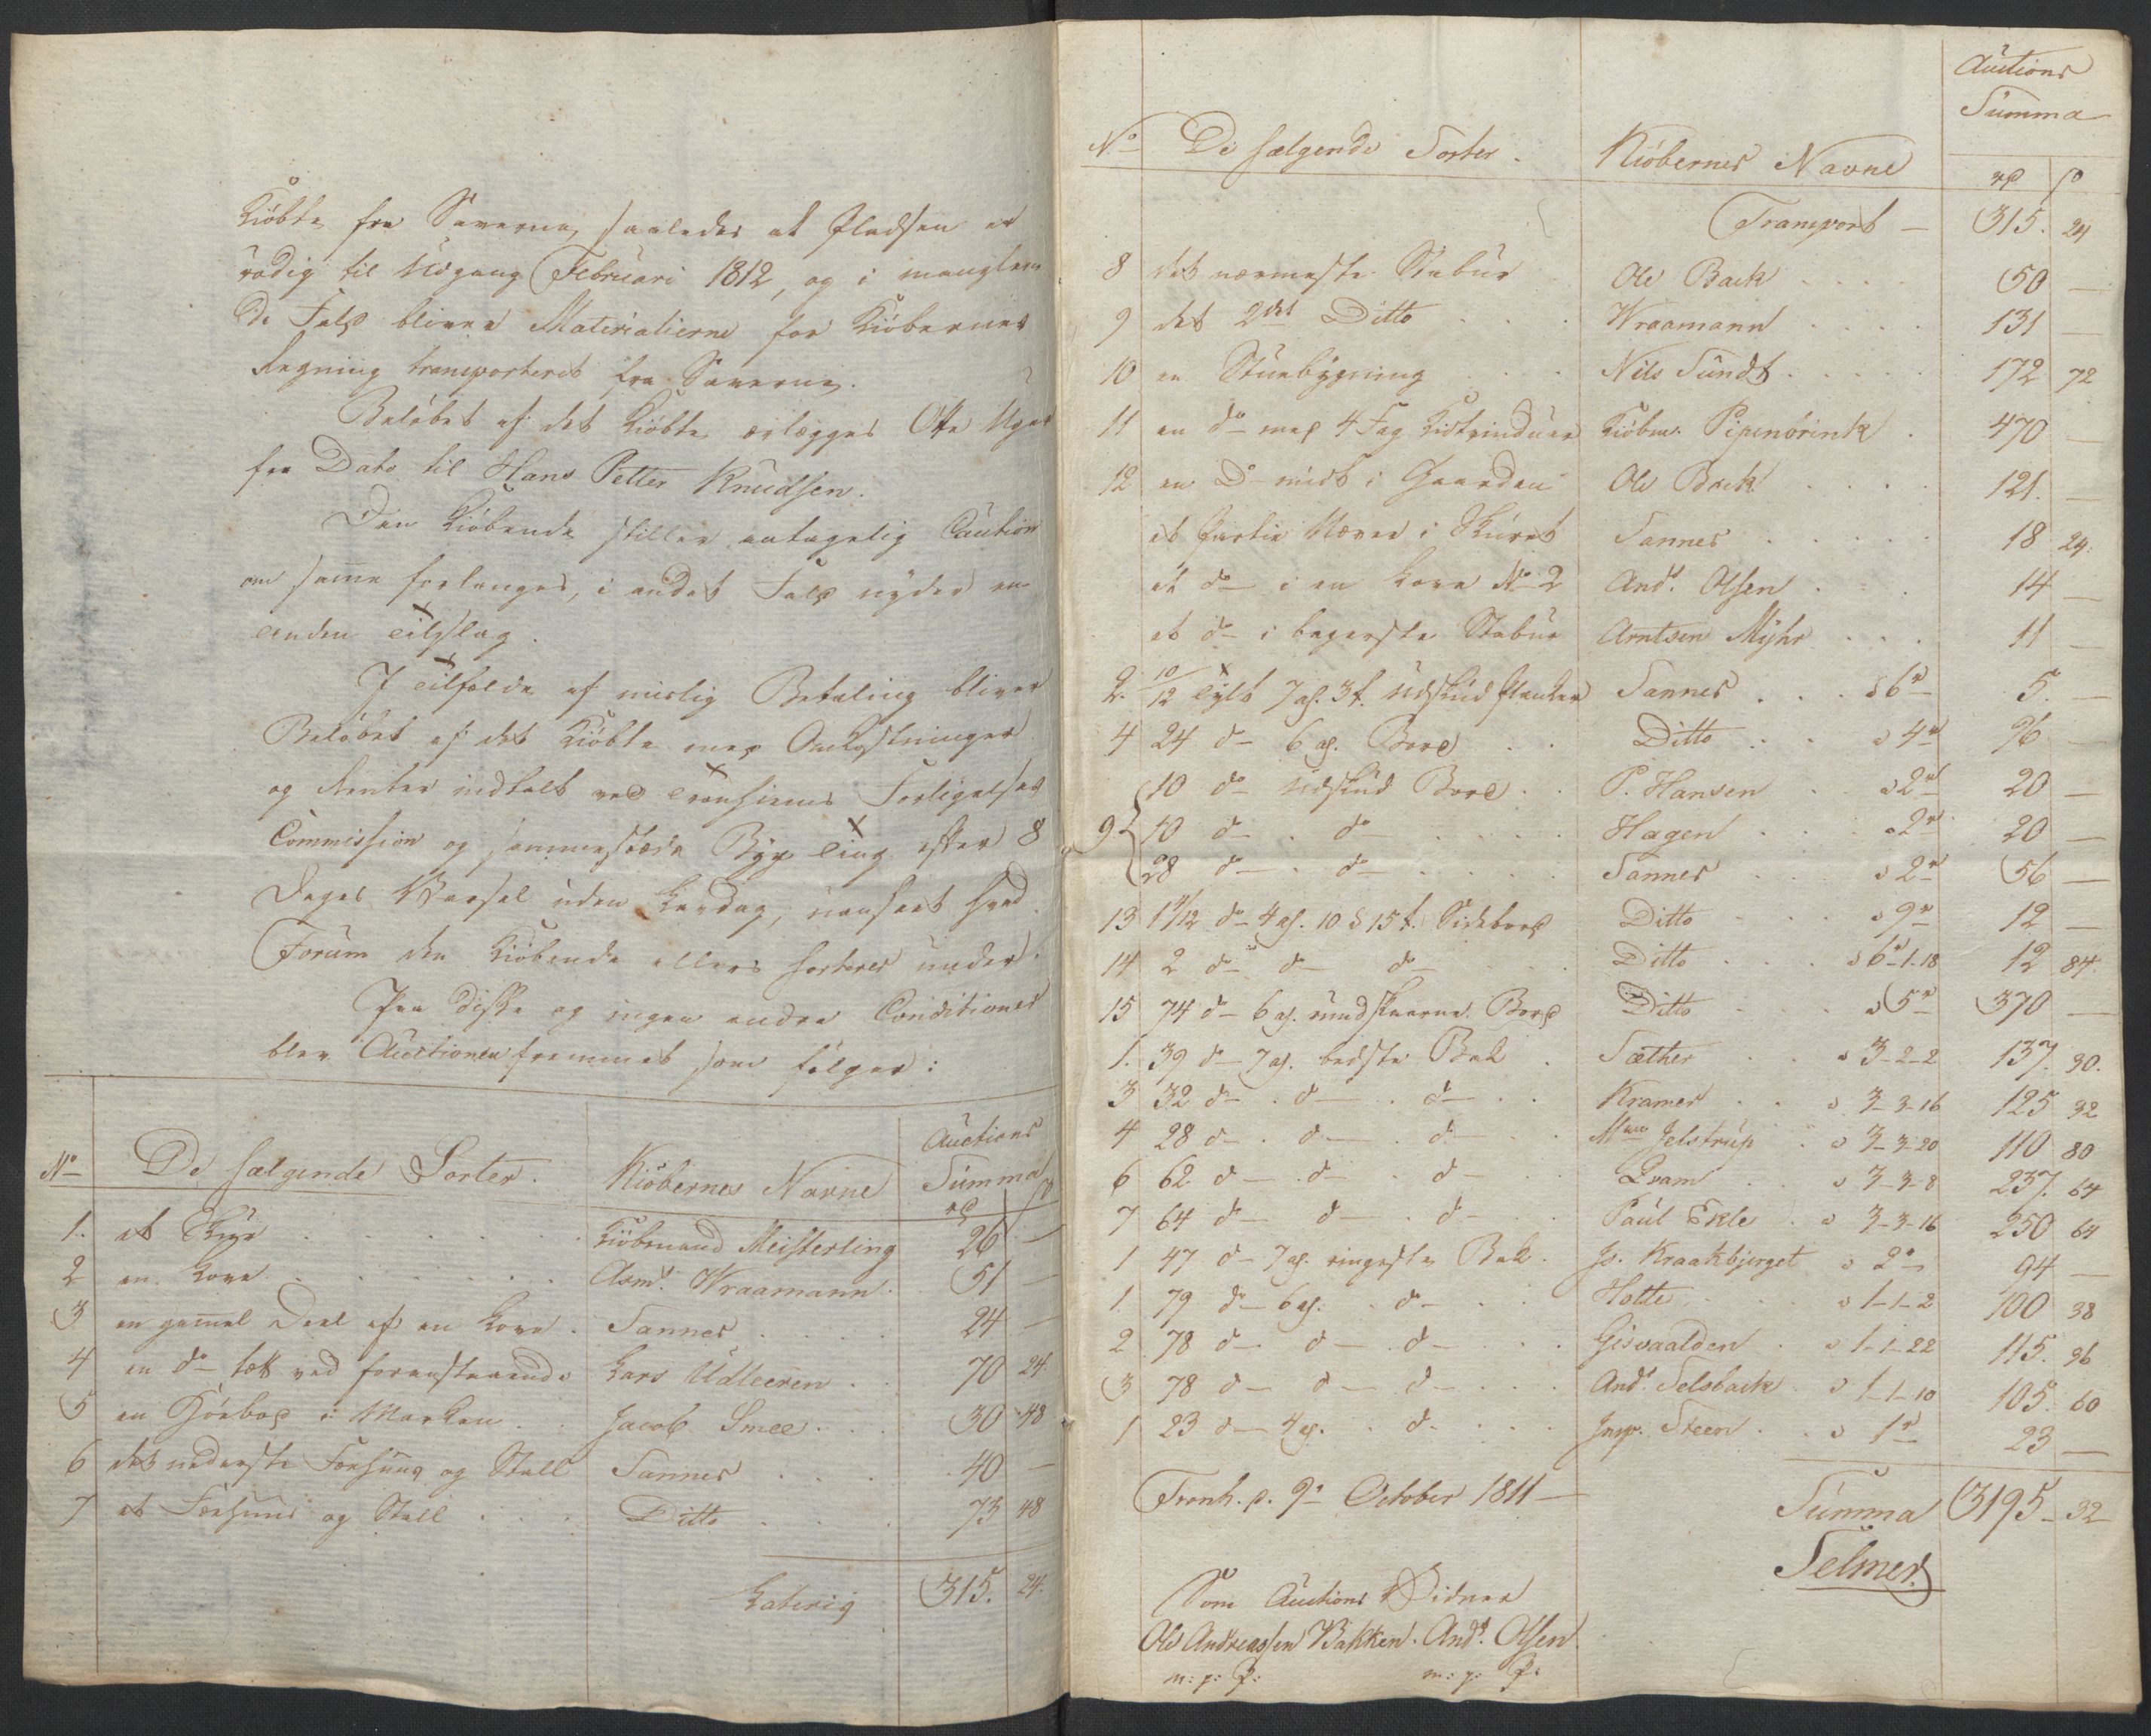 Kiöbte fra Saverne, saaledes at Pladsen er
rödig til Udgang Februari 1812, og i manglen-
de Fald bliver Materialierne for Kiöbernes
Regning transporteret fra Saverne.
Belöbet af det Kiöbte erlægges Otte Uger
fra Dato til Hans Petter Knudsen.
Den Kiöbende stiller antagelig Caution
om samme forlanges, i andet Fald nyder en
anden Tilslag.
I Tilfælde af mislig Betaling bliver
Belöbet af det Kiöbte med Omkostninger
og Renter indtalt ved Tronhiems Forligelses
Commission og sammestæds Bye Ting efter 8
Dages Varsel uden Lavdag, uanseet hvad
Forum den Kiöbende ellers sorterer under.
Paa disse og ingen andre Conditioner
blev Auctionen fremmet som fölger:
No De sælgende Sorter. Kiöbernes Navne Auctions Summa
rd s
1. et Skur Kiöbmand Meisterling 26 —
2 en Love Asmd. Wraamann 51 —
3 en gammel Deel af en Love Sannes 24 —
4 en do tæt ved forenstaaende Lars Udleeren 70 24.
5 en Höebod i Marken Jacob Smee 30 48
6 det nederste Foehuus og Stall Sannes 40 —
7 et Foehuus og Stall Ditto 73 48
Lateris 315. 24.
Auctions
Summa
No De sælgende Sorter. Kiöbernes Navne rd s
Transport — 315. 24
8 det nærmeste Stabur Ole Back 50 —
9 det 2det Ditto Wraamann 131 —
10 en Stuebygning Nils Sundt 172 72
11 en do med 4 Fag Kistvinduer Kiöbm. Pipenörink 470 —
12 en Do midt i Gaarden Ole Back 121. —
et Partie Næver i Skuret Sannes 18 24.
et do i en Love No 2 And. Olsen 14 —
et do i bagerste Stabur Arntsen Myhr 11 —
2. 10/12 Tylt 7 al. 3t. Udskud Planker Sannes à 6r 5. —
4 24 do 6 al. Bord Ditto à 4r 96 —
10 do Udskud Bord P. Hansen à 2r 20 —
9 10 do . do Hagen à 2r 20 —
28 do . do Sannes à 2r 56 —
13 1 4/12 do 4 al. 10 à 15 t. Sidebord Ditto à 9r 12 —
14 2 do do do Ditto à 6-1-18 12 84.
15 74 do 6 al. rundskaarne Bord Ditto à 5r 370 —
1. 39 do 7 al. bedste Bak Sæther à 3-2-2 137. 30.
3 32 do . do . do Kramer à 3-3-16 125 32
4 28 do . do . do Mme Jelstrup à 3-3-20 110 80
6 62 do . do . do Pram à 3-3-8 237. 64
7 64 do do . do Paul Ekle à 3-3-16 250 64
1 47 do 7 al. ringeste Bak Jo. Kraakbjerget à 2r 94 —
1. 79 do 6 al. . do Hotte à 1-1-2 100 38
2 78 do do . do Gisvaalden à 1-1-22 115. 36
3 78 do do . do And. Selsback à 1-1-10 105. 60
1 23 do 4 al. . do Insp. Steen à 1r 23 —
Tronh. d. 9de October 1811 — Summa 3195 — 32
Selmer
Som Auctions Vidner
Ole Andreassen Bakken. Ands. Olsen
m: p: P: m: p: P: